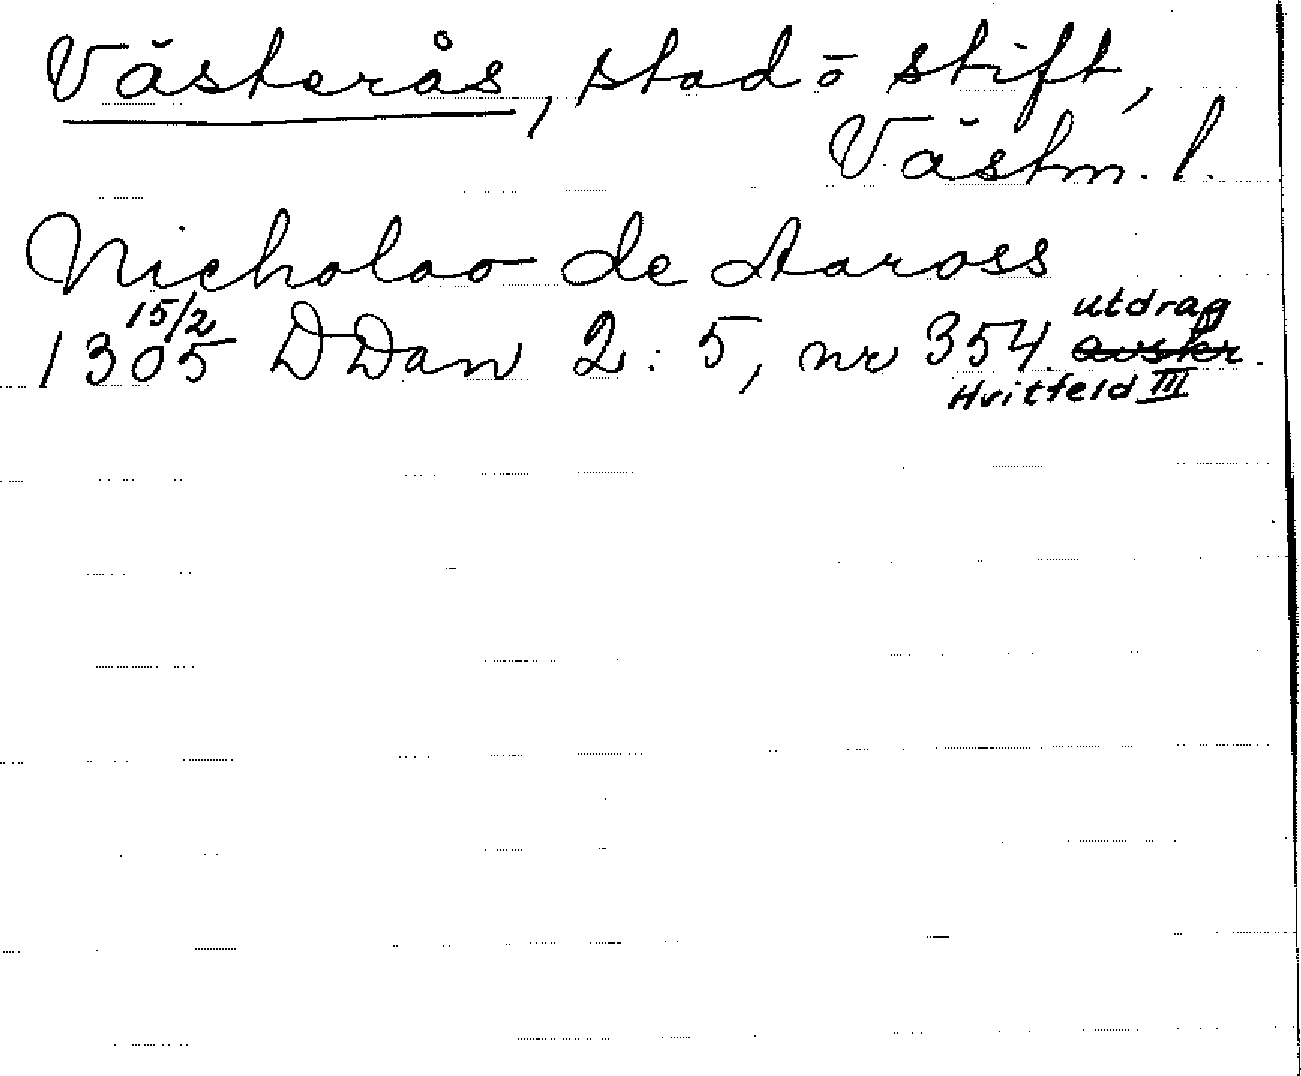 Västerås, stad ō stift,
Västm. l.
Nicholao de Aaross
15/2 utdrag
1305 DDan 2:5, nr 354. avskr.
Hvitfeld III